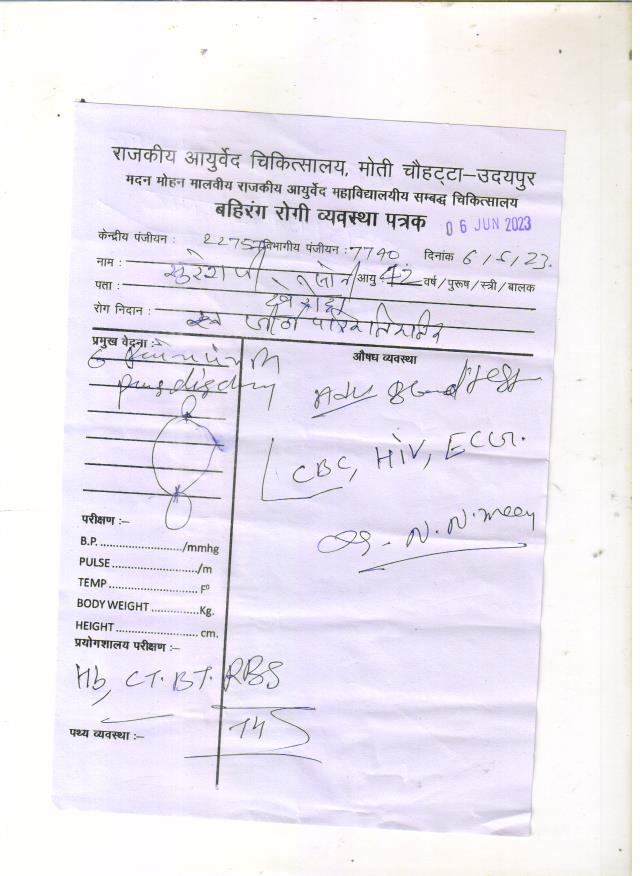 राजकीय आयुर्वेद चिकित्सालय, मोती चौहट्टा–उदयपुर
मदन मोहन मालवीय राजकीय आयुर्वेद महाविद्यालयीय सम्बद्ध चिकित्सालय
बहिरंग रोगी व्यवस्था पत्रक 06 JUN 2023
केन्द्रीय पंजीयन : 22757 विभागीय पंजीयन : 7790 दिनांक 6/6/23.
नाम : आयु 42 वर्ष / पुरूष / स्त्री / बालक
पता :
रोग निदान :
प्रमुख वेदना :– औषध व्यवस्था
pus discharg Adv Blood Test
CBC, HIV, ECG.
Dr. N. N. Meen
परीक्षण :–
B.P. ........................./mmhg
PULSE ........................./m
TEMP ........................... F⁰
BODY WEIGHT ..............Kg.
HEIGHT ..................... cm.
प्रयोगशालय परीक्षण :–
Hb, CT. BT. RBS
145
पथ्य व्यवस्था :–